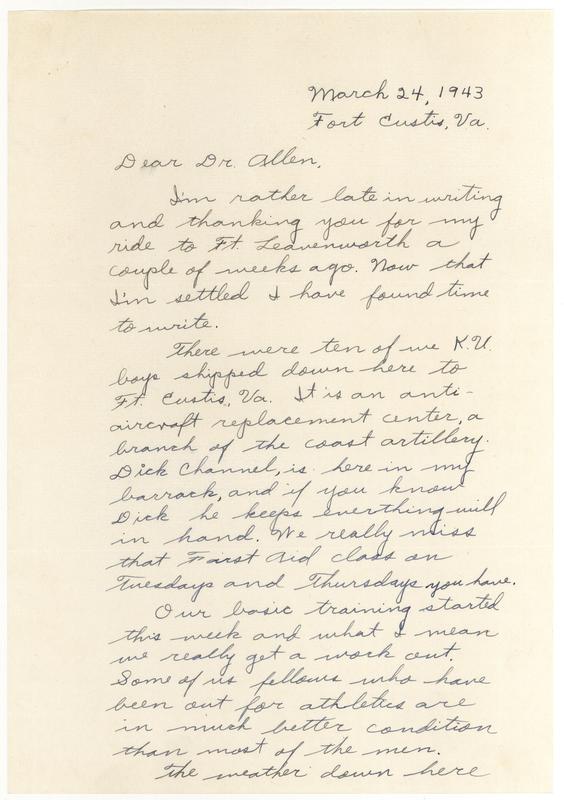 March 24, 1943
Fort Eustis, Va.
Dear Dr. Allen,
I'm rather late in writing
and thanking you for my
ride to Ft. Leavenworth a
couple of weeks ago. Now that
I'm settled I have found time
to write.
There were ten of we K.U.
boys shipped down here to
Ft. Eustis, Va. It is an anti-
aircraft replacement center, a
branch of the coast artillery.
Dick Channel, is here in my
barrack, and if you know
Dick he keeps everthing will
in hand. We really miss
that First Aid class on
Tuesdays and Thursdays you have.
Our basic training started
this week and what I mean
we really get a work out.
Some of us fellows who have
been out for athletics are
in much better condition
than most of the men.
The weather down here